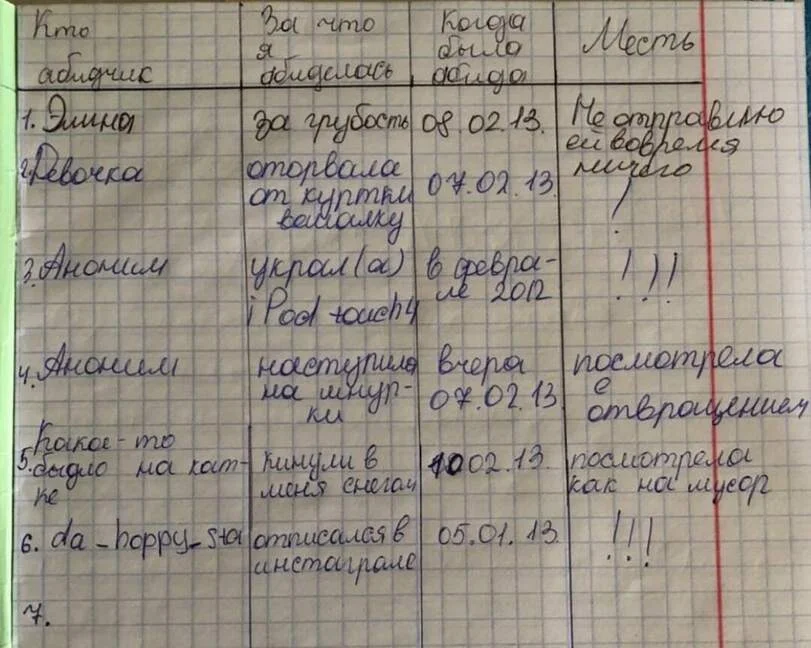 Кто
абидчик
За что
я
абиделась
Когда
была
абида
Месть
1. Элина
за грубость
08.02.13.
Не отправлю
ей вовремя
ничего
2. Девочка
оторвала
от куртки
вашалку
07.02.13.
!
3. Аноним
украл(а)
iPod touch 4
в февра-
ле 2012
!!!
4. Аноним
наступила
на шнур-
ки
вчера
07.02.13.
посмотрела
с
отвращением
5. Какое-то
быдло на кат-
ке
кинули в
меня снегом
10 02.13.
посмотрела
как на мусор
6. da_hoppy_sta
отписался в
инстаграме
05.01.13.
!!!
7.